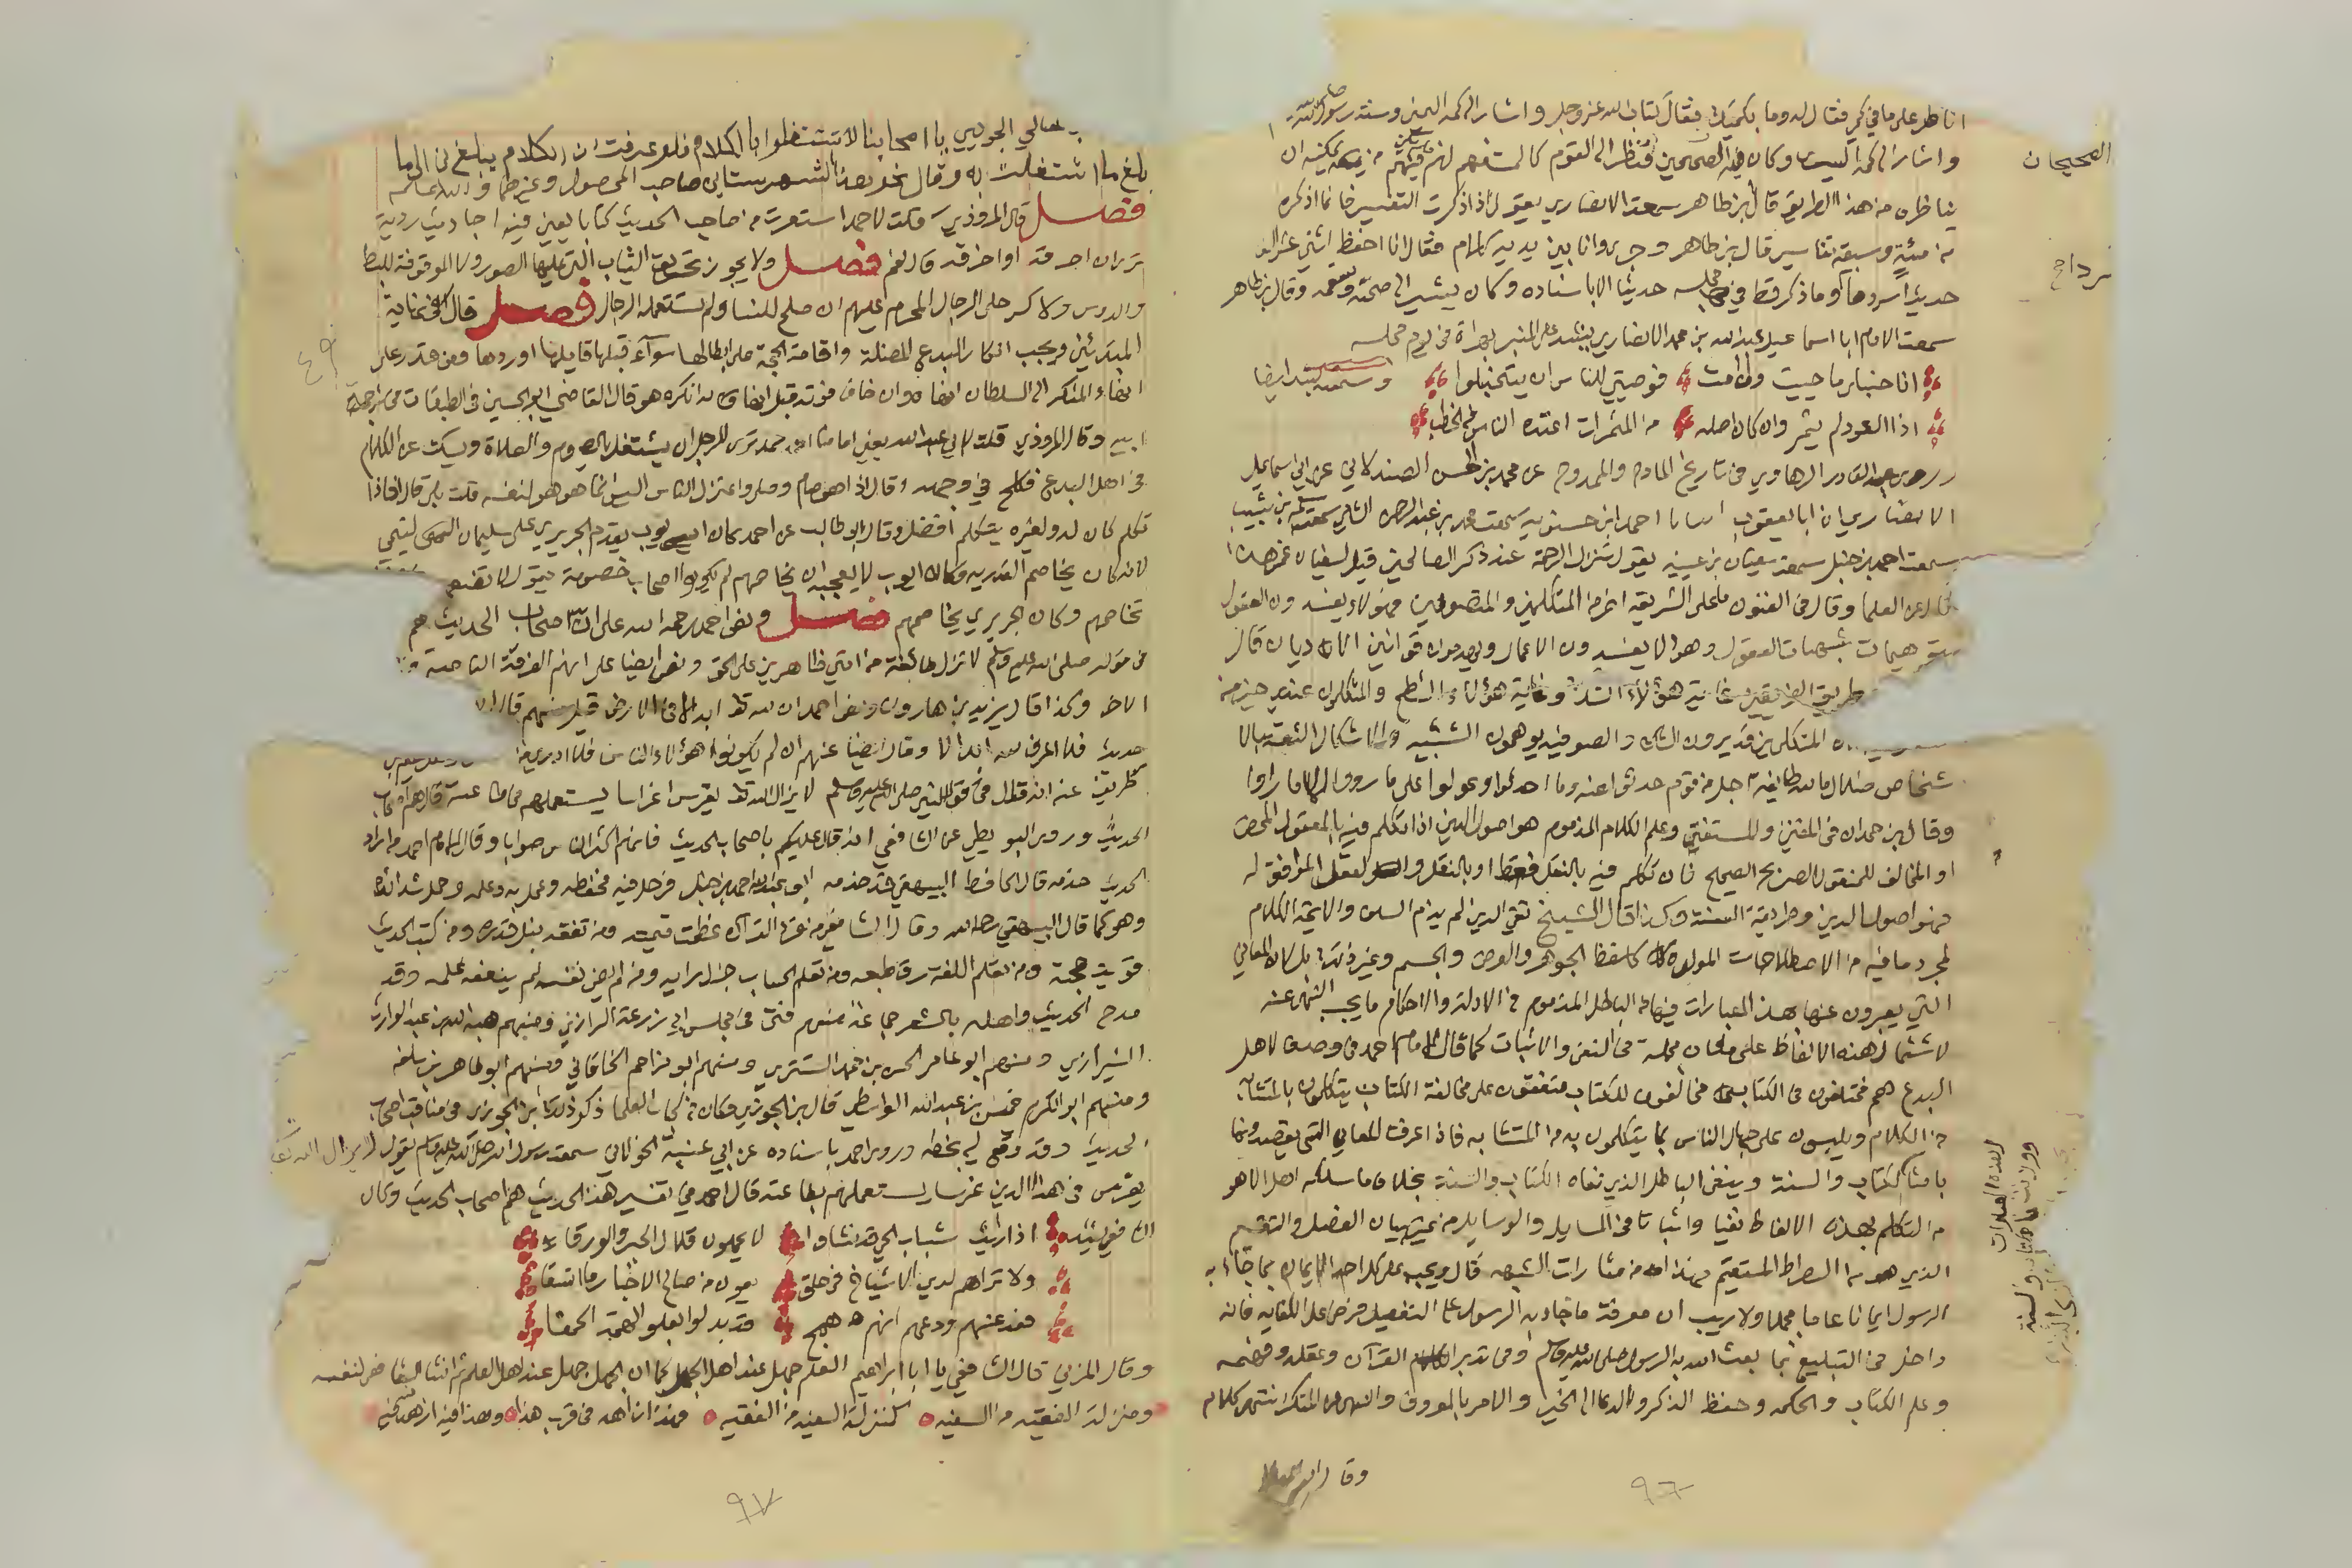 اناظر على ما في كمي فقال له وما بكميك فقال كتاب الله عز وجل واشار الى كمه اليمين وسنة رسول الله صلى
واشار الى كمه اليسار وكان فيه الصحيحين فنظر الى القوم كالمستفهم لهم فلم يكن فيهم من يمكنه ان
الصحيحان
يناظره من هذا الطريق قال ابن طاهر سمعت الانصاري يقول اذا ذكرت التفسير فانما اذكره
من مئة وسبعة تفاسير قال ابن طاهر وجرى وانا بين يديه كلام فقال انا احفظ اثني عشر الف
حديث اسردها وما ذكر قط في مجلسه حديثا الا باسناده وكان يشير الى صحته وسقمه وقال ابن طاهر
سمعت الامام ابا اسماعيل عبد الله بن محمد الانصاري ينشد على المنبر بهراة في يوم مجلسه
انا حنبلي ما حييت وان امت فوصيتي للناس ان يتحنبلوا وسمعته ينشد ايضا
اذا العود لم يثمر وان كان اصله من المثمرات اعتده الناس في الحطب
وروى عبد القادر الرهاوي في تاريخ المادح والممدوح عن محمد بن الحسن الصيدلاني عن ابي اسماعيل
الانصاري ان ابا يعقوب انبانا احمد ابن حسنويه سمعت محمد بن عبد الرحمن الشامي سمعت سلمة بن شبيب
سمعت احمد بن حنبل سمعت سفيان بن عيينة يقول تنزل الرحمة عند ذكر الصالحين قيل لسفيان عمن هذا
قال عن العلما وقال في الفنون ما على الشريعة اضر من المتكلمين والمتصوفين فهؤلاء يفسدون العقول
بتوهيمات شبهات العقول وهؤلا يفسدون الاعمال ويهدمون قوانين الاديان قال
طريق الفريقين غاية هؤلاء الشك وغاية هؤلاء الشطح والمتكلمون عندي خير من
المتكلمين قد يردون الشك والصوفية يوهمون التشبيه والاشكال الثقة بالا
شخاص ضلال ما لله طايفة اجل من قوم حدثوا عنه وما احدثوا وعولوا على ما رووا لا ما راوا
وقال ابن حمدان في المفتي والمستفتي وعلم الكلام المذموم هو اصول الدين اذا تكلم فيه بالمعقول المحض
او المخالف للمنقول الصريح الصحيح فان تكلم فيه بالنقل فقط او بالنقل والعقل الموافق له
فهو اصول الدين وطريقة السنة وكذا قال الشيخ تقي الدين لم يذم السلف والايمة الكلام
لمجرد ما فيه من الاصطلاحات المولدة كلفظ الجوهر والعرض والجسم وغير ذلك بل لان المعاني
التي يعبرون عنها بهذه العبارات فيها من الباطل المذموم في الادلة والاحكام ما يجب النهي عنه
لاشتمال هذه الالفاظ على معان مجملة في النفي والاثبات كما قال الامام احمد في وصفه لاهل
البدع هم مختلفون في الكتاب مخالفون للكتاب متفقون على مخالفة الكتاب يتكلمون بالمتشابه
من الكلام ويلبسون على جهال الناس بما يتكلمون به من المتشابه فاذا عرفت المعاني التي يقصدونها
بامثال الكتاب والسنة وينفى الباطل الذي نفاه الكتاب والسنة بخلاف ما سلكه اهل الاهو
من التكلم بهذه الالفاظ نفيا واثباتا في المسايل والوسايل من غير بيان الفصل والتقسيم
الذي هو من الصراط المستقيم فهذا من مثارات الشبهه قال ويجب على كل احد الايمان بما جاء به
الرسول ايمانا عاما مجملا ولا ريب ان معرفة ما جاء به الرسول على التفصيل فرض على الكفايه فانه
داخل في التبليغ بما بعث الله به الرسول صلى الله عليه وسلم وفي تدبر القرآن وعقله وفهمه
وعلم الكتاب والحكمه وحفظ الذكر والدعا الى الخير والامر بالمعروف والنهي عن المنكر انتهى كلام
٩٦
المعالي الجويني يا اصحابنا لا تشتغلوا بالكلام فلو عرفت ان الكلام يبلغ بي الى ما
بلغ ما اشتغلت به وقال نحو هذا الشهرستاني صاحب المحصول وغيرهما والله اعلم
فصل قال المروذي قلت لاحمد استعرت من صاحب الحديث كتابا يعني فيه احاديث ردية
ترى ان احرقه او اخرقه قال نعم فصل ولا يجوز تحريق الثياب التي عليها الصور ولا المرقومة للبسط
والدوس ولا كسر حلي الرجال المحرم عليهم ان صلح للنسا ولم تستعمله الرجال فصل قال في نهاية
المبتدئين ويجب انكار البدع المضلة واقامة الحجة على ابطالها سوآء قبلها قايلها او ردها ومن قدر على
انهاء المنكر الى السلطان انهاه وان خاف فوته قبل انهائه انكره هو قال القاضي ابو الحسين في الطبقات في ترجمة
ابيه وقال المروذي قلت لابي عبد الله يعني امامنا احمد ترى للرجل ان يشتغل بالصوم والصلاة ويسكت عن الكلام
في اهل البدع فكلح في وجهه وقال اذا هو صام وصلى واعتزل الناس اليس انما هو لنفسه قلت بلى قال فاذا
تكلم كان له ولغيره يتكلم افضل وقال ابو طالب عن احمد كان ايوب يقدم الجريري على سليمان التيمي
لانه كان يخاصم القدرية وكان ايوب لا يعجبه ان يخاصمهم لم يكونوا اصحاب خصومة يقول لا تضعهم
تخاصمهم وكان الجريري لا يخاصمهم فصل ونص احمد رحمه الله على ان اصحاب الحديث هم
في قوله صلى الله عليه وسلم لا تزال طائفة من امتي ظاهرين على الحق ونص ايضا على انهم الفرقة الناجية
الاخر وكذا قال يزيد بن هارون ونص احمد ان لله تعالى ابدالا في الارض قيل من هم قال ان
حديث فلا اعرف لله ابدالا وقال ايضا عنهم ان لم يكونوا هؤلاء الناس فلا ادري من
طريق عنه انه قال في قول النبي صلى الله عليه وسلم لا يزال الله تعالى يغرس غراسا يستعملهم في طاعته قال هم اصحاب
الحديث وروى البويطي عن الشافعي انه قال عليكم باصحاب الحديث فانهم اكثر الناس صوابا وقال الامام احمد من اراد
الحديث خدمه قال الحافظ البيهقي قد خدمه ابو عبد الله احمد بن حنبل فرحل فيه فحفظه وعمل به وعلمه وحمل شدائده
وهو كما قال البيهقي رحمه الله وقال الشافعي من قرا القرآن عظمت قيمته ومن تفقه نبل قدره ومن كتب الحديث
قويت حجته ومن تعلم اللغه رق طبعه ومن تعلم الحساب جزل رايه ومن لم يصن نفسه لم ينفعه علمه وقد
مدح الحديث واهله بالشعر جماعة منهم فتى في مجلس ابي زرعة الرازي ومنهم هبة الله بن عبد الوارث
الشيرازي ومنهم ابو عامر الحسن بن محمد النسوي ومنهم ابو مزاحم الخاقاني ومنهم ابو طاهر بن سلفه
ومنهم ابو الكرم خميس بن عبد الله الواسطي قال ابن الجوزي وكان من كبار العلما ذكر ذلك ابن الجوزي في مناقب اصحاب
الحديث وقد وقع لي بخطه وروى احمد باسناده عن ابي عنبة الخولاني سمعت رسول الله صلى الله عليه وسلم يقول لا يزال الله تعالى
يغرس في هذا الدين غرسا يستعملهم بطاعته قال احمد في تفسير هذا الحديث هم اصحاب الحديث وكان
الشافعي ينشده اذا رايت شباب الحي قد نشاوا لا يحملون قلال الحبر والورقا
ولا تراهم لدي الاشياخ في حلق يعون من صالح الاخبار ما اتسقا
فعد عنهم ودعهم انهم همج قد بدلوا بعلو الهمة الحمقا
وقال المزني قال الشافعي يا ابا ابراهيم العلم جهل عند اهل الجهل كما ان الجهل جهل عند اهل العلم ثم انشا الشافعي لنفسه
ومنزلة الفقيه من السفيه كمنزلة السفيه من الفقيه فهذا زاهد في قرب هذا وهذا فيه ازهد منه فيه
٩٧